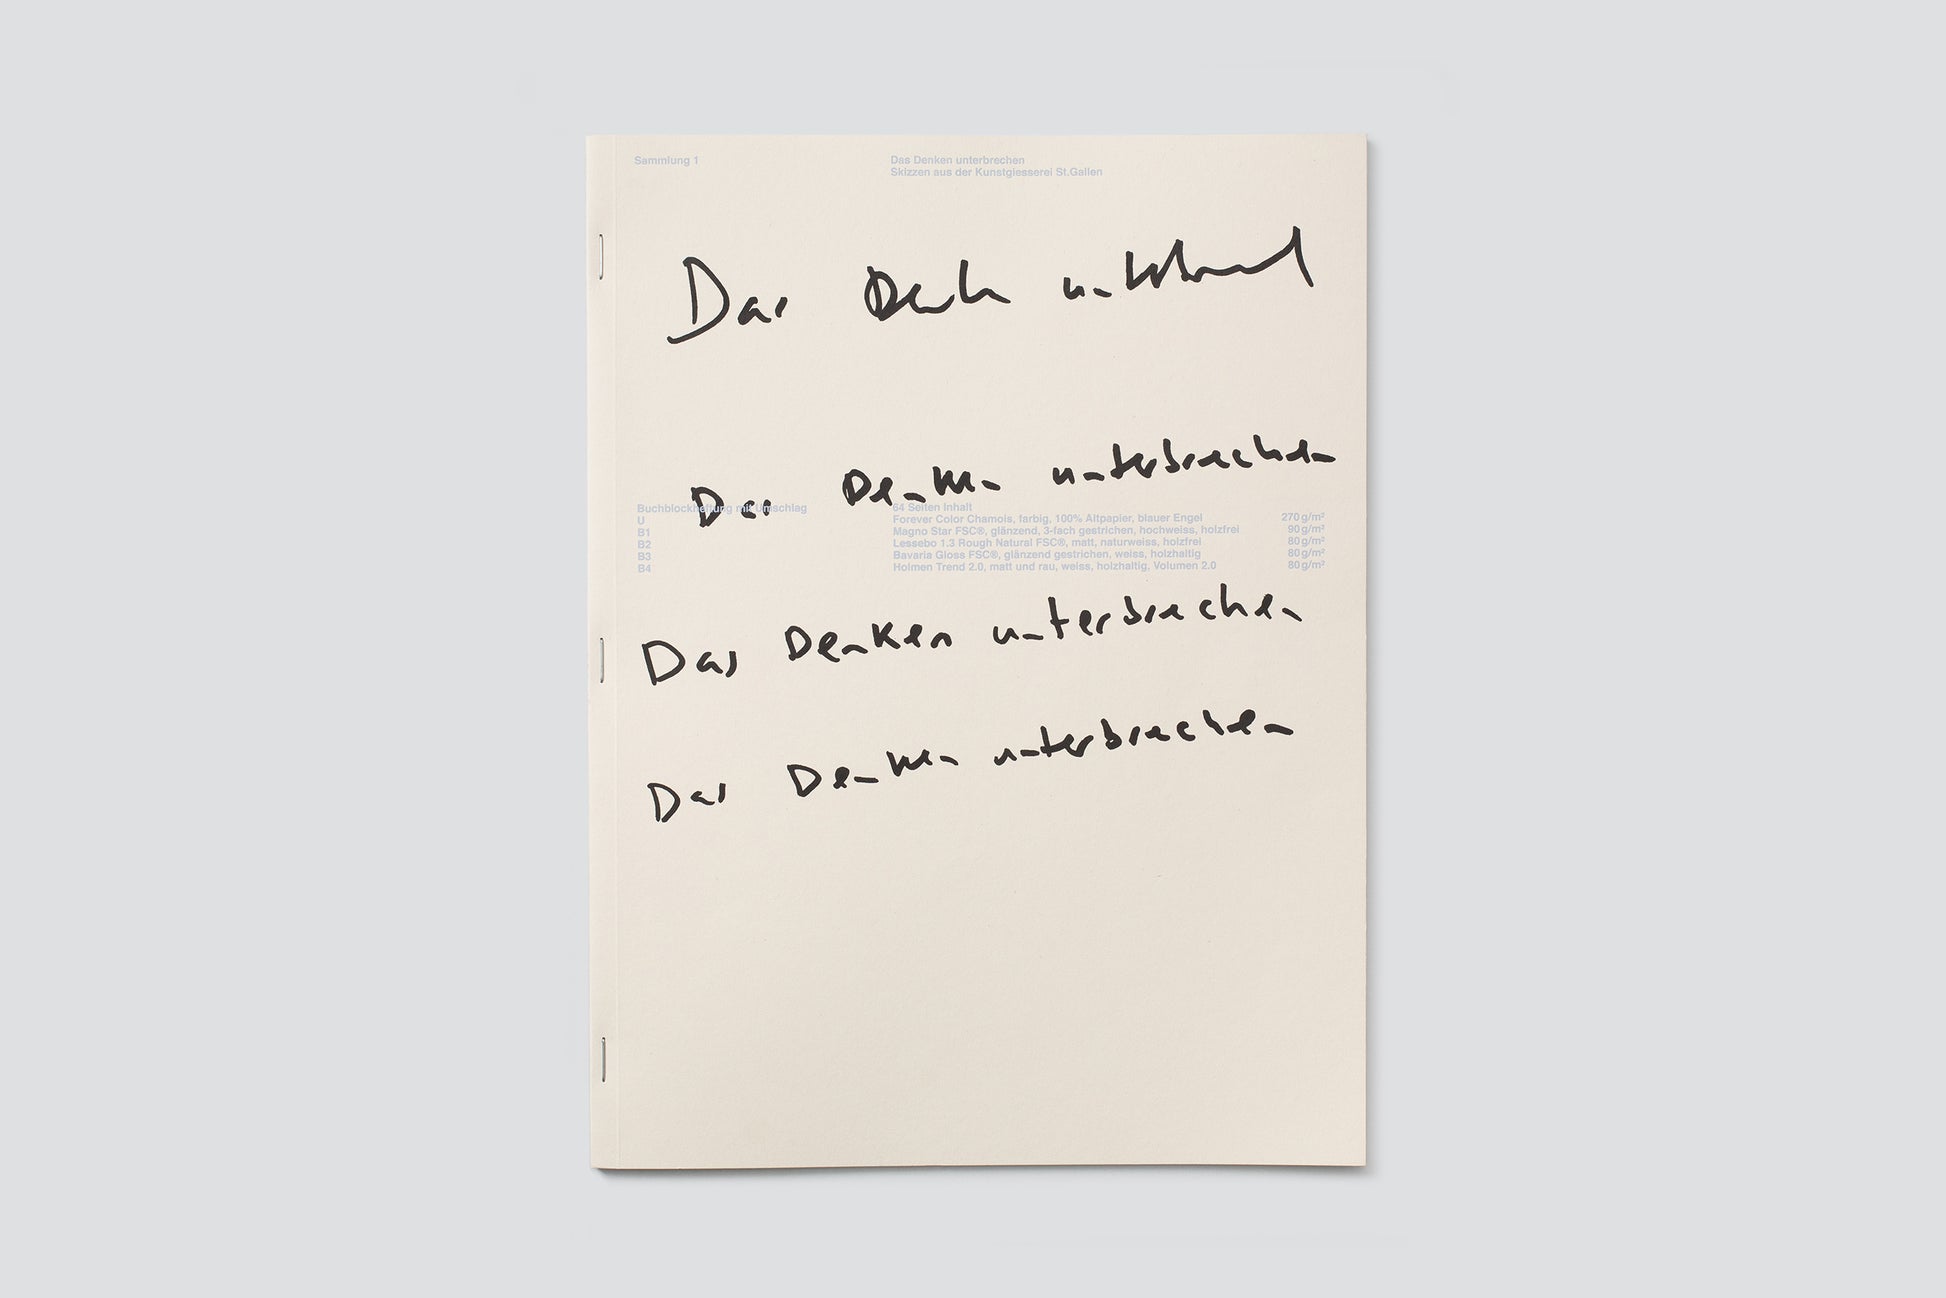 Sammlung 1
Das Denken unterbrechen
Skizzen aus der Kunstgiesserei St.Gallen
Das Denken unterbrechen
Das Denken unterbrechen
Buchblockheftung mit Umschlag 64 Seiten Inhalt
U Forever Color Chamois, farbig, 100% Altpapier, blauer Engel 270 g/m²
B1 Magno Star FSC®, glänzend, 3-fach gestrichen, hochweiss, holzfrei 90 g/m²
B2 Lessebo 1.3 Rough Natural FSC®, matt, naturweiss, holzfrei 80 g/m²
B3 Bavaria Gloss FSC®, glänzend gestrichen, weiss, holzhaltig 80 g/m²
B4 Holmen Trend 2.0, matt und rau, weiss, holzhaltig, Volumen 2.0 80 g/m²
Das Denken unterbrechen
Das Denken unterbrechen